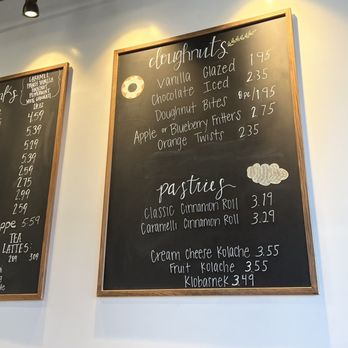 CARAMEL
4.59
5.39
5.39
5.59
2.25
2.75
2.99
2.59
5.59
TEA
LATTES:
doughnuts
Vanilla Glazed 1.95
Chocolate Iced 2.35
Doughnut Bites 8pc/1.95
Apple or Blueberry Fritters 2.75
Orange Twists 2.35
pastries
Classic Cinnamon Roll 3.19
Caramelli Cinnamon Roll 3.29
Cream Cheese Kolache 3.55
Fruit Kolache 3.55
Klobarnek 3.49